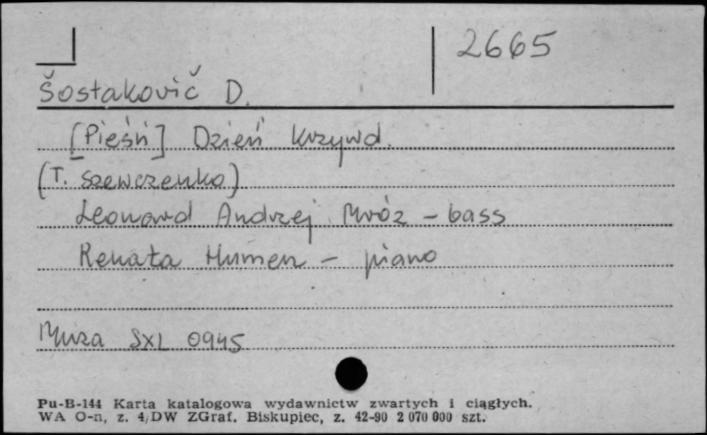 2665
Šostakovič D.
[Pieśń] Dzień krzywd.
(T. Szewczenko)
Leonard Andrzej Mróz - bass
Renata Humen - piano
Muza SXL 0945
Pu-B-144 Karta katalogowa wydawnictw zwartych i ciągłych.
WA O-n, z. 4/DW ZGraf. Biskupiec, z. 42-90 2 070 000 szt.